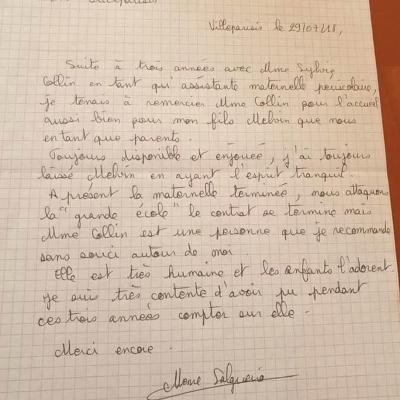 Villeparisis
Villeparisis le 29/07/18,
Suite à trois années avec Mme Sylvie
Collin en tant qu'assistante maternelle périscolaire,
je tenais à remercier Mme Collin pour l'accueil
aussi bien pour mon fils Melvin que nous
en tant que parents.
Toujours disponible et enjouée, j'ai toujours
laissé Melvin en ayant l'esprit tranquil.
A présent la maternelle terminée, nous attaquons
la "grande école" le contrat se termine mais
Mme Collin est une personne que je recommande
sans souci autour de moi.
Elle est très humaine et les enfants l'adorent.
Je suis très contente d'avoir pu pendant
ces trois années compter sur elle.
Merci encore.
Mme Salgueiro